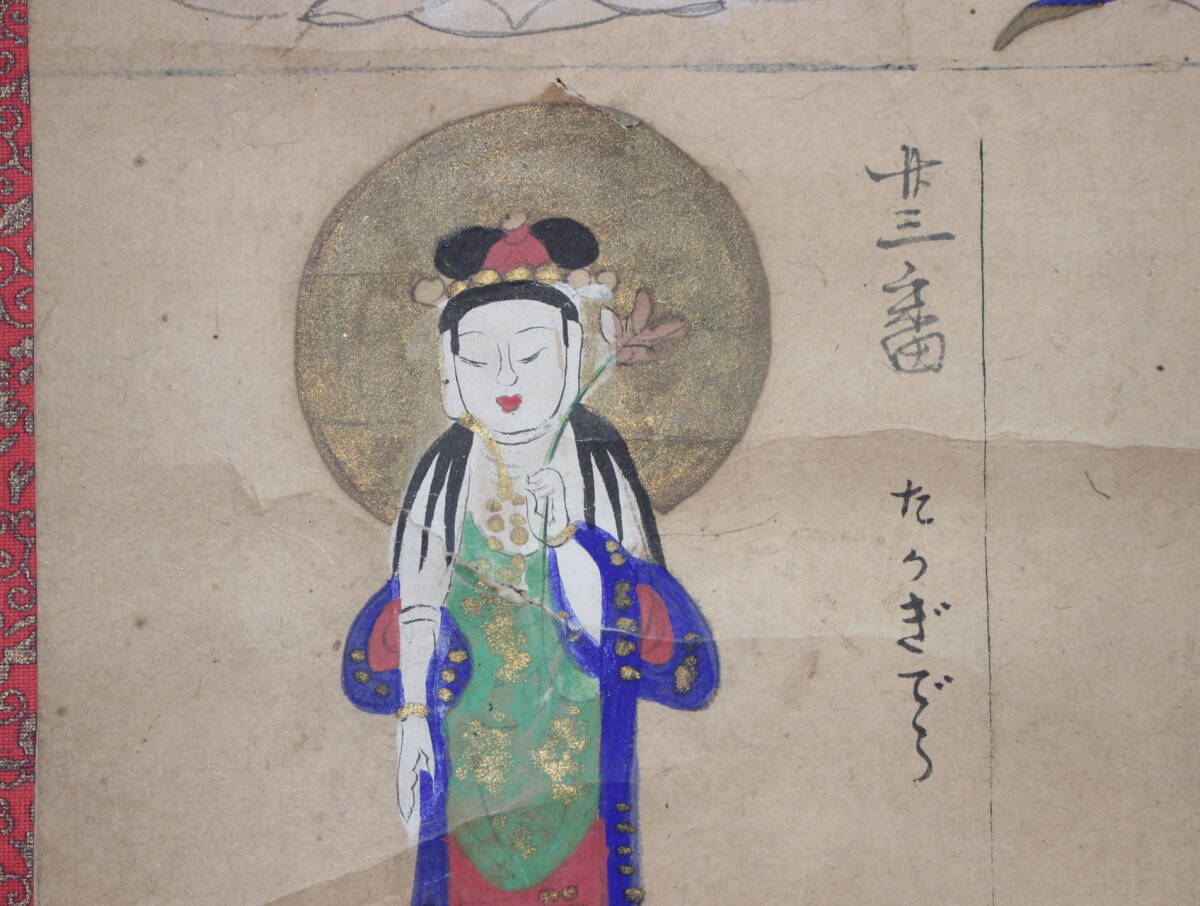 廿三番
たかぎでら